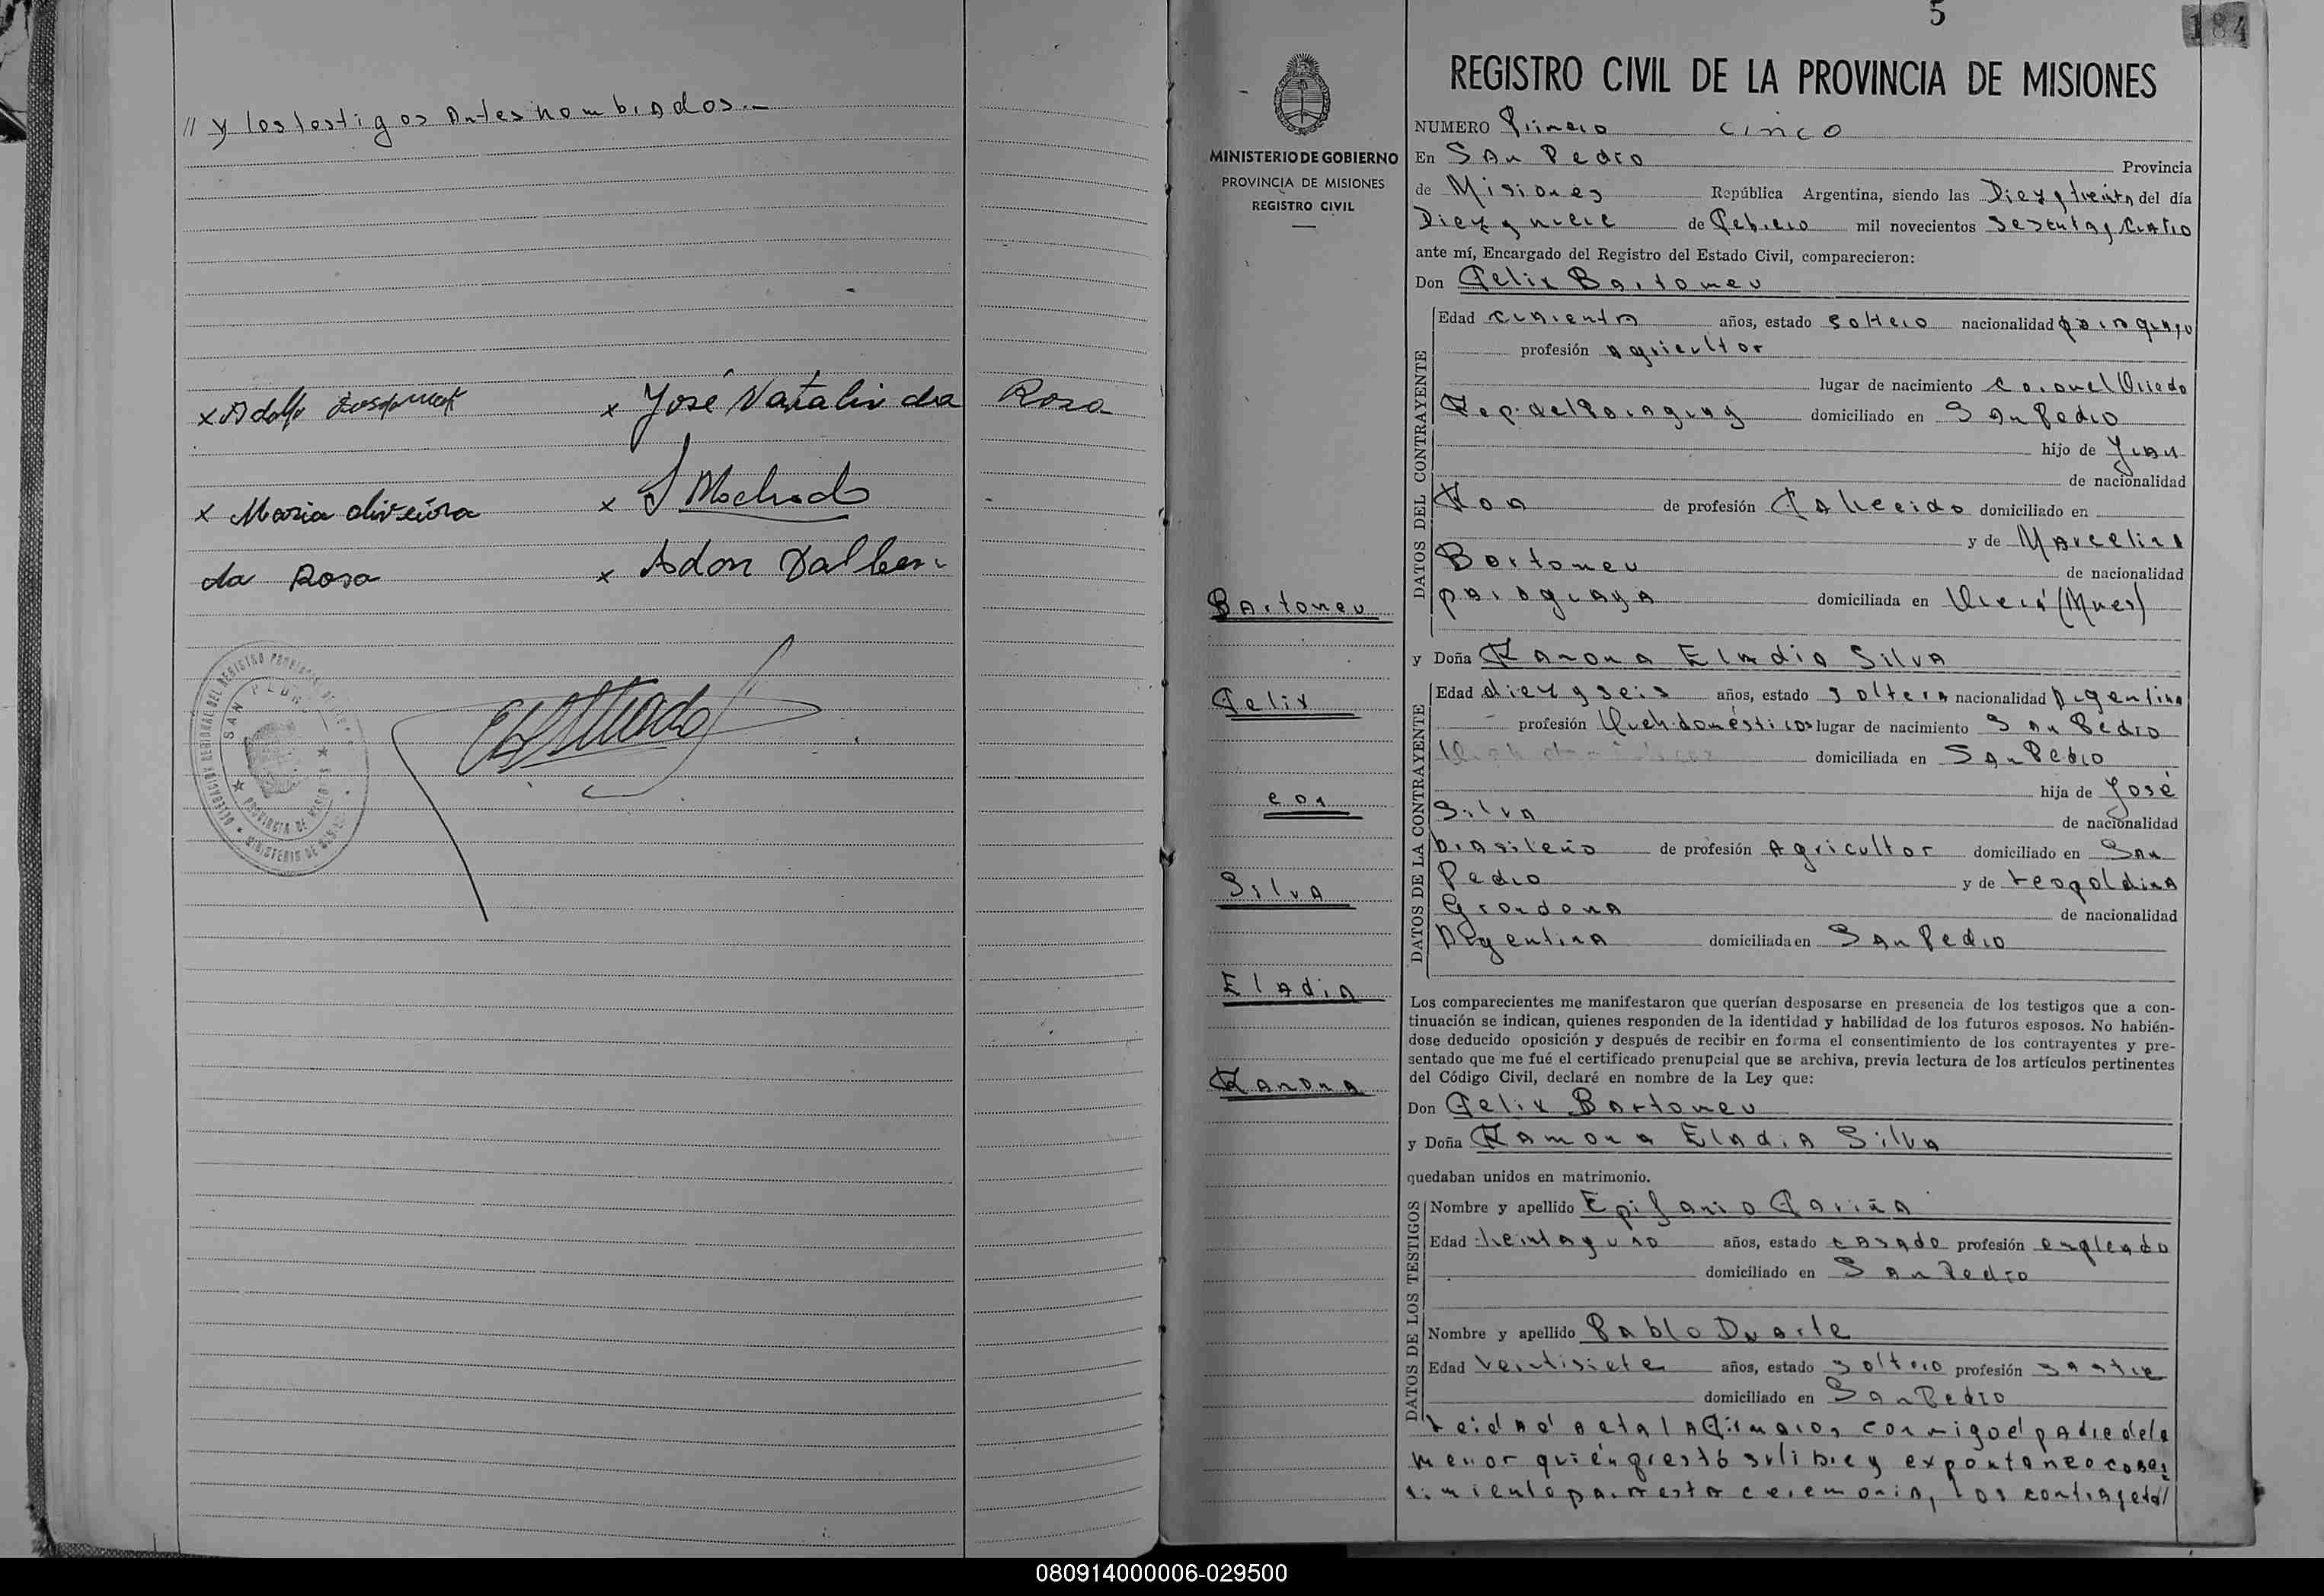 // y los testigos antes nombrados.-
x Adolfo
x José Natalin da Rosa
x Maria oliveira
x J Machado
da Rosa
x Adon Dalber
SAN PEDRO
PROVINCIA DE MISIONES
5
184
MINISTERIO DE GOBIERNO
PROVINCIA DE MISIONES
REGISTRO CIVIL
Bartomeu
Felix
con
Silva
Eladia
Ramona
REGISTRO CIVIL DE LA PROVINCIA DE MISIONES
NUMERO Primero cinco
En San Pedro Provincia
de Misiones República Argentina, siendo las Diez y treinta del día
Diez y nueve de Febrero mil novecientos sesenta y cuatro
ante mí, Encargado del Registro del Estado Civil, comparecieron:
Don Felix Bartomeu
DATOS DEL CONTRAYENTE
Edad cuarenta años, estado soltero nacionalidad paraguayo
profesión agricultor
lugar de nacimiento Coronel Oviedo
Rep. del Paraguay domiciliado en San Pedro
hijo de Juan
de nacionalidad
Roa de profesión Fallecido domiciliado en
y de Marcelina
Bartomeu de nacionalidad
paraguaya domiciliada en (Mnes)
y Doña Ramona Eladia Silva
DATOS DE LA CONTRAYENTE
Edad diez y seis años, estado soltera nacionalidad Argentina
profesión Queh. domésticos lugar de nacimiento San Pedro
domiciliada en San Pedro
hija de José
Silva de nacionalidad
brasileño de profesión Agricultor domiciliado en San
Pedro y de Leopoldina
Grondona de nacionalidad
Argentina domiciliada en San Pedro
Los comparecientes me manifestaron que querían desposarse en presencia de los testigos que a con-
tinuación se indican, quienes responden de la identidad y habilidad de los futuros esposos. No habién-
dose deducido oposición y después de recibir en forma el consentimiento de los contrayentes y pre-
sentado que me fué el certificado prenupcial que se archiva, previa lectura de los artículos pertinentes
del Código Civil, declaré en nombre de la Ley que:
Don Felix Bartomeu
y Doña Ramona Eladia Silva
quedaban unidos en matrimonio.
DATOS DE LOS TESTIGOS
Nombre y apellido Epifanio Fariña
Edad treinta y uno años, estado casado profesión empleado
domiciliado en San Pedro
Nombre y apellido Pablo Duarte
Edad veintisiete años, estado soltero profesión sastre
domiciliado en San Pedro
Leida el acta la firmaron conmigo el padre de la
menor quién prestó su libre y expontaneo consen
timiento para esta ceremonia, los contrayent//
080914000006-029500